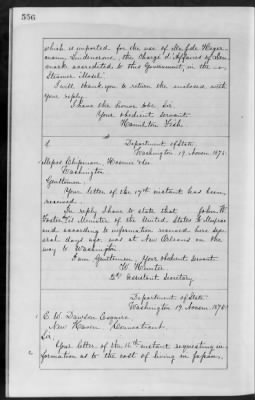 556
which is imported for the use of Mr. J. de Heger-
mann Lindencrone, the Chargé d'Affaires of Den-
mark accredited to this Government, in the
Steamer "Mosel".
I will thank you to return the enclosure with
your reply.
I have the honor to be, Sir,
Your obedient servant
Hamilton Fish.
Department of State.
Washington 19. Novem. 1875.
Messrs Chipman, Hosmer &co.
Washington
Gentlemen:
Your letter of the 17th instant has been
received.
In reply I have to state that John W.
Foster, Minister of the United States to Mexico
and according to information received here sev-
eral days ago was at New Orleans on the
way to Washington.
I am Gentlemen, Your obedient servant
W. Hunter
2d Assistant Secretary
Department of State.
Washington 19. Novem. 1875.
E. W. Dawson Esquire
New Haven, Connecticut.
Sir,
Your letter of the 16th instant requesting in-
formation as to the cost of living in Japan,